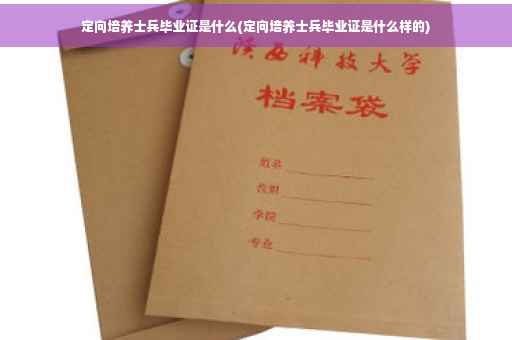 定向培养士兵毕业证是什么(定向培养士兵毕业证是什么样的)
陕西科技大学
档案袋
学院
专业